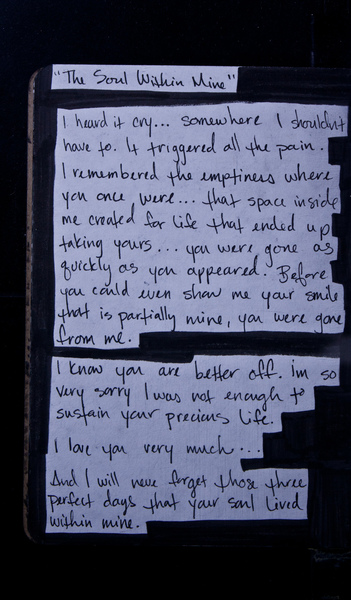 "The Soul Within Mine"
I heard it cry... somewhere I shouldn't
have to. It triggered all the pain.
I remembered the emptiness where
you once were... that space inside
me created for life that ended up
taking yours... you were gone as
quickly as you appeared. Before
you could even show me your smile
that is partially mine, you were gone
from me.
I know you are better off. im so
very sorry I was not enough to
sustain your precious life.
I love you very much...
And I will never forget those three
perfect days that your soul lived
within mine.